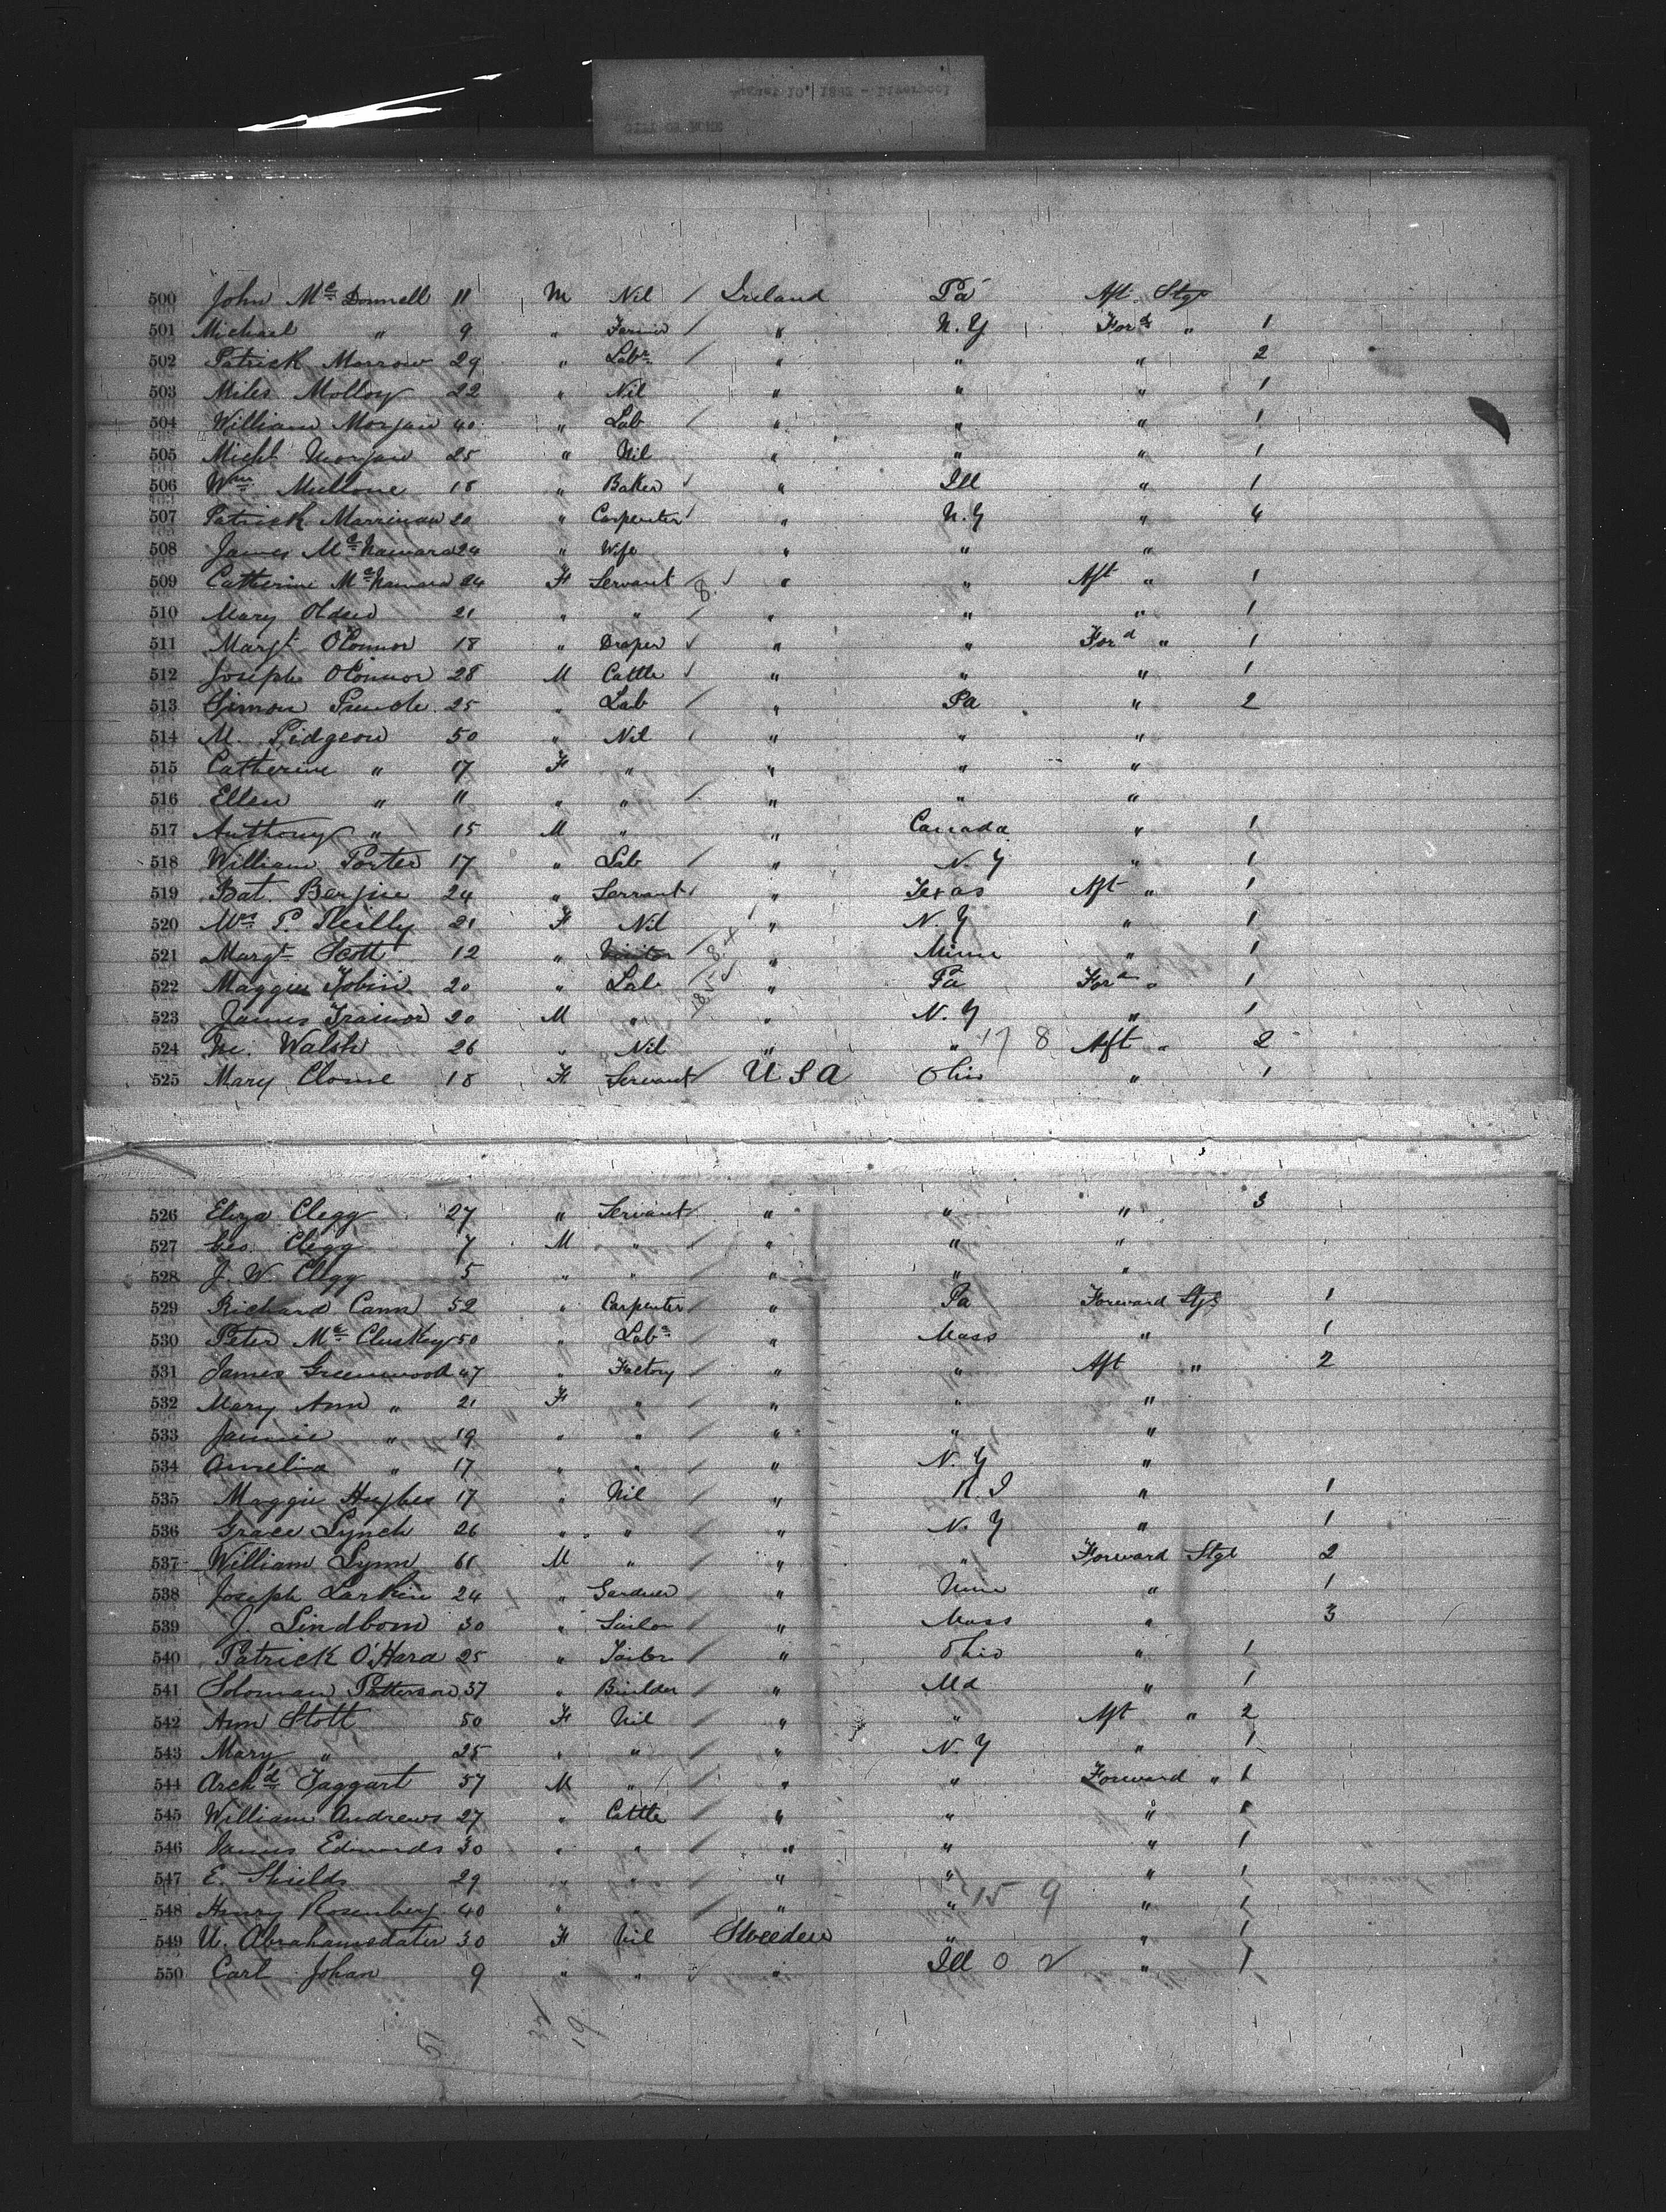 August 10, 1892 - Liverpool
500 John Mc Donnell 11 M Nil / Ireland Pa Aft. Stge
501 Michael " 9 " Farmer / " N.Y For'd " 1
502 Patrick Morrow 29 " Labr / " " " 2
503 Miles Molloy 22 " Nil " " " 1
504 William Morgan 40 " Lab / " " " 1
505 Michl Morgan 25 " Nil " " " 1
506 Wm Mullone 18 " Baker " Ill " 1
507 Patrick Marrinan 20 " Carpenter " N.Y " 4
508 James Mc Namara 24 " Wife " " "
509 Catherine Mc Namara 24 F Servant / 8 " " Aft " 1
510 Mary 21 " " / " " " 1
511 Margt O'Connor 18 " Draper " " Ford " 1
512 Joseph O'Connor 28 M Cattle " " " 1
513 Simon 25 " Lab / " Pa " 2
514 M. Pidgeon 50 " Nil / " " "
515 Catherine " 17 F " " " "
516 Ellen " 11 " " / " " "
517 Anthony " 15 M " " Canada " 1
518 William Porter 17 " Lab / " N.Y " 1
519 Bat. 24 " Servant " Texas Aft " 1
520 Mrs P. Reilly 21 F Nil / " N.Y " 1
521 Margt Scott 12 " / " Minn " 1
522 Maggie Tobin 20 " Lab / " Pa Ford " 1
523 James Trainor 20 M " " N.Y " 1
524 Walsh 26 " Nil " " 17 8 Aft " 2
525 Mary Clome 18 F Servant / USA Ohio " 1
526 Eliza Clegg 27 " Servant / " " " 3
527 Geo. Clegg 7 M " / " " "
528 J. W. Clegg 5 " " " " "
529 Richard Cann 52 " Carpenter / " Pa Forward Stge 1
530 Peter Mc Cluskey 50 " Labr / " Mass " 1
531 James Greenwood 47 " Factory / " " Aft " 2
532 Mary Ann " 21 F " / " " "
533 Jannie " 19 " " / " " "
534 Amelia " 17 " " / " N.Y "
535 Maggie Hughes 17 " Nil / " R I " 1
536 Grace Lynch 26 " " / " N.Y " 1
537 William Lynn 61 M " / " " Forward Stge 2
538 Joseph Larkin 24 " Gardner / " " 1
539 J. Lindbom 30 " / " Mass " 3
540 Patrick O'Hara 25 " / " Ohio " 1
541 Soloman Patterson 37 " Builder / " Md " 1
542 Ann Stott 50 F Nil / " " Aft " 2
543 Mary " 25 " " / " N.Y " 1
544 Arch'd Taggart 57 M " / " " Forward " 1
545 William Andrews 27 " Cattle / " " " 1
546 James Edwards 30 " " / " " " 1
547 E. Shields 29 " " / " " " 1
548 Henry Rosenberg 40 " " / " " 15 9 " 1
549 U. Abrahamsdater 30 F Nil Sweeden " " 1
550 Carl Johan 9 " " " Ill 0 2 " 1
19